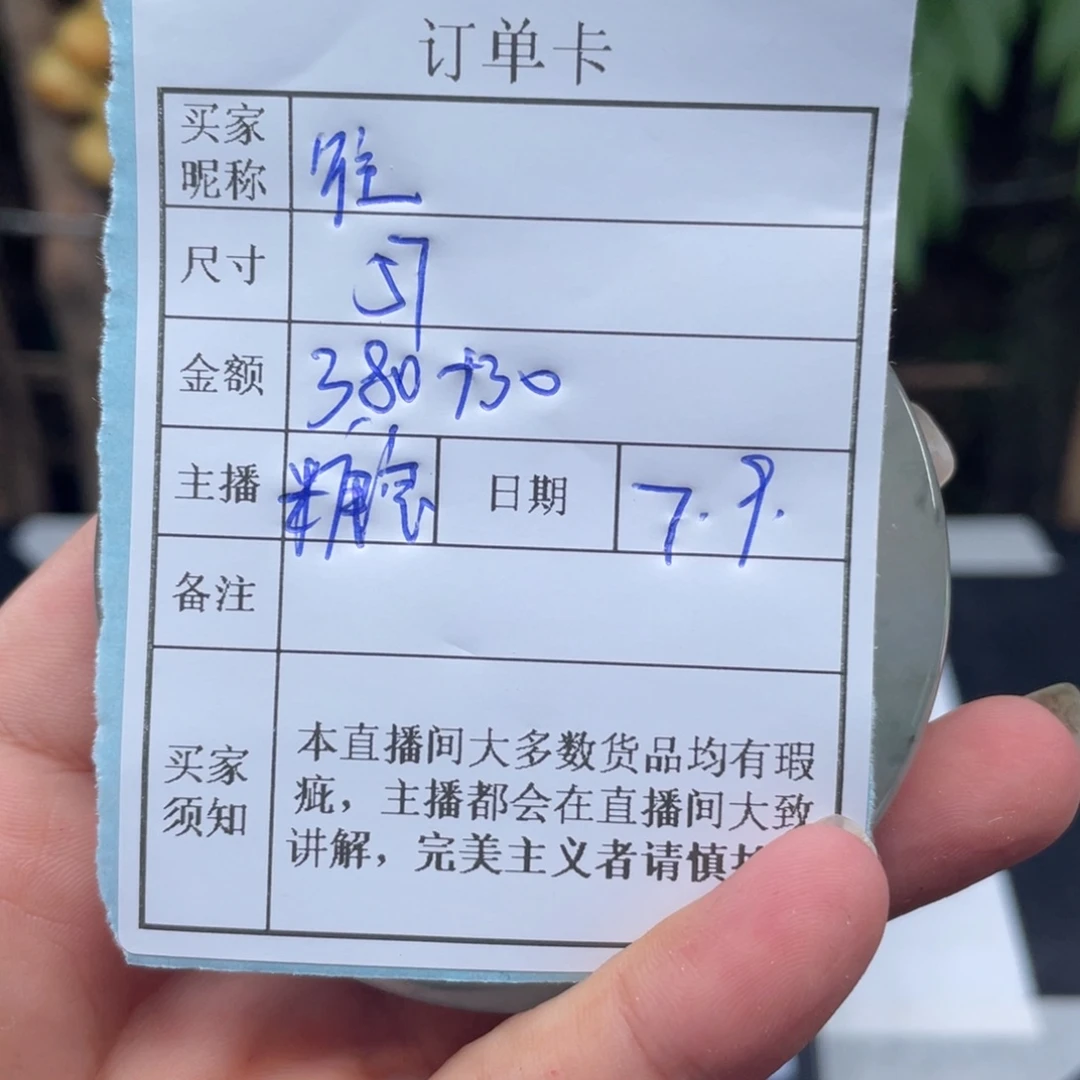 订单卡
买家昵称 雅
尺寸 57
金额 380+30
主播 糖 日期 7.9.
备注
买家须知
本直播间大多数货品均有瑕
疵，主播都会在直播间大致
讲解，完美主义者请慎